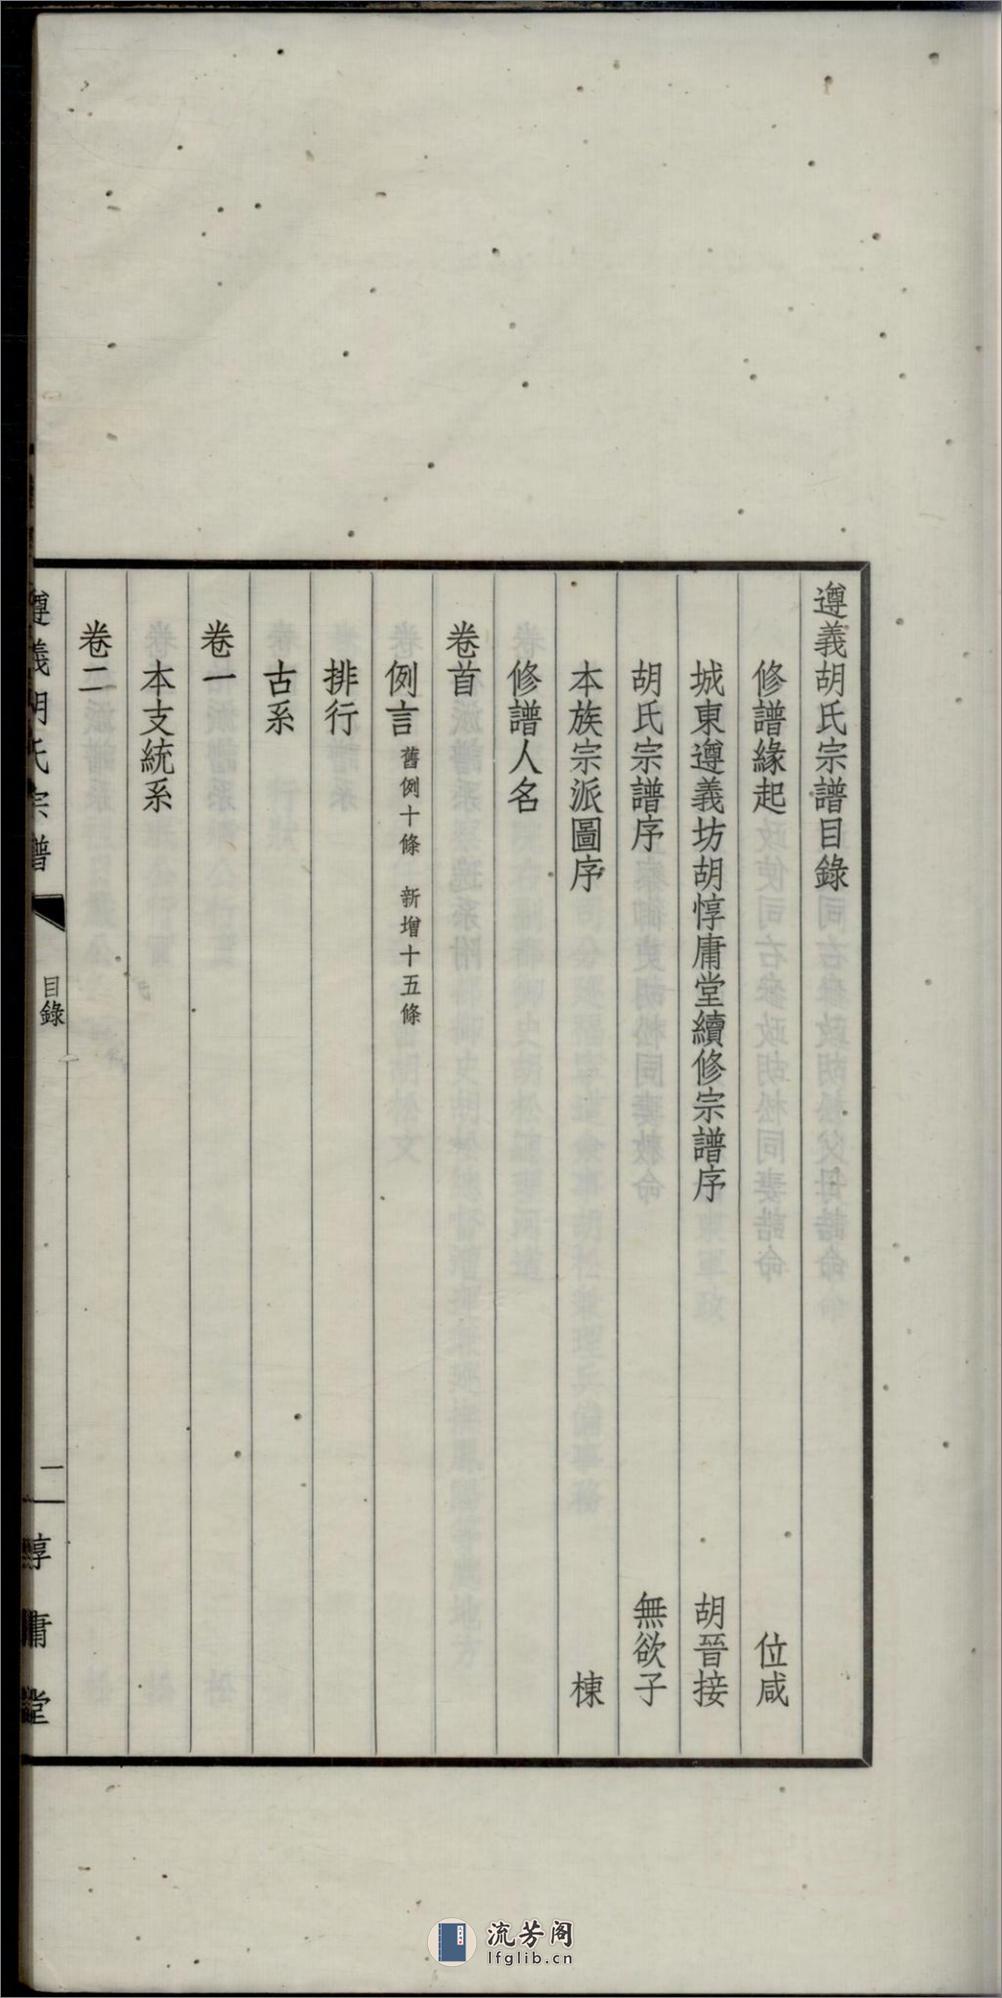 遵義胡氏宗譜目錄
修譜緣起 位咸
城東遵義坊胡惇庸堂續修宗譜序 胡晉接
胡氏宗譜序 無欲子
本族宗派圖序 棟
修譜人名
卷首
例言 舊例十條 新增十五條
排行
古系
卷一
本支統系
卷二
遵義胡氏宗譜 目錄 一 惇庸堂
流芳阁
lfglib.cn